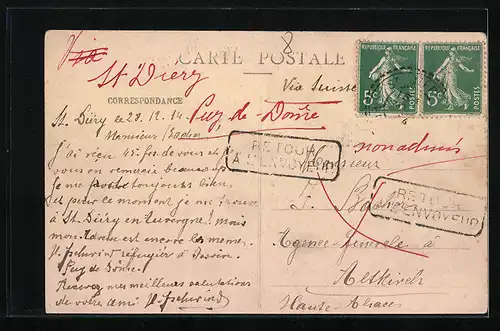 Via
8
CARTE POSTALE
St Diéry
Via Suisse
REPUBLIQUE FRANÇAISE
REPUBLIQUE FRANÇAISE
5c
POSTES
5c
POSTES
CORRESPONDANCE
Puy-de-Dôme
St. Diéry le 28.12.14
Monsieur
RETOUR
A L'ENVOYEUR
non admis
J'ai reçu 45 frs de vous et je
vous en remercie beaucoup
je me porte toujours bien
et pour le moment je me trouve
à St. Diéry en Auvergne! mais
mon adresse est encore la meme.
réfugier à Issoire
Puy de Dôme.
Recevez mes meilleures salutations
de votre ami
Monsieur
RETOUR
A L'ENVOYEUR
Agence Générale à
Altkirch
Haute Alsace